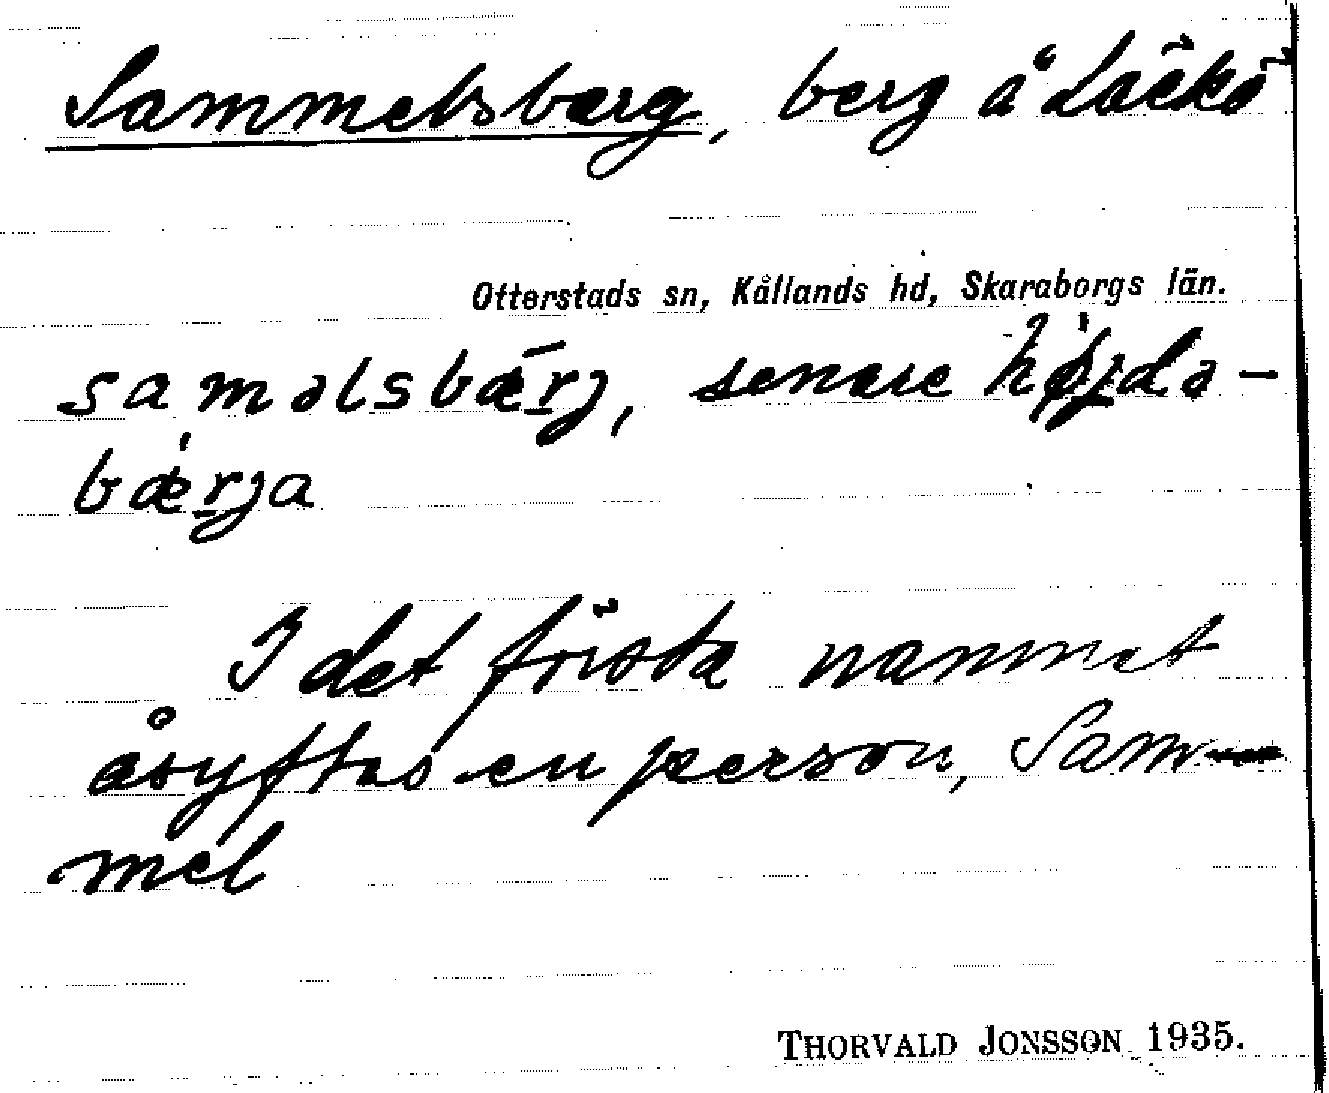 Sammelsberg, berg å Läckö
Otterstads sn, Kållands hd, Skaraborgs län.
saməlsbærj, senare højda-
bærja
I det första namnet
åsyftas en person, Sam-
mel
THORVALD JONSSON 1935.